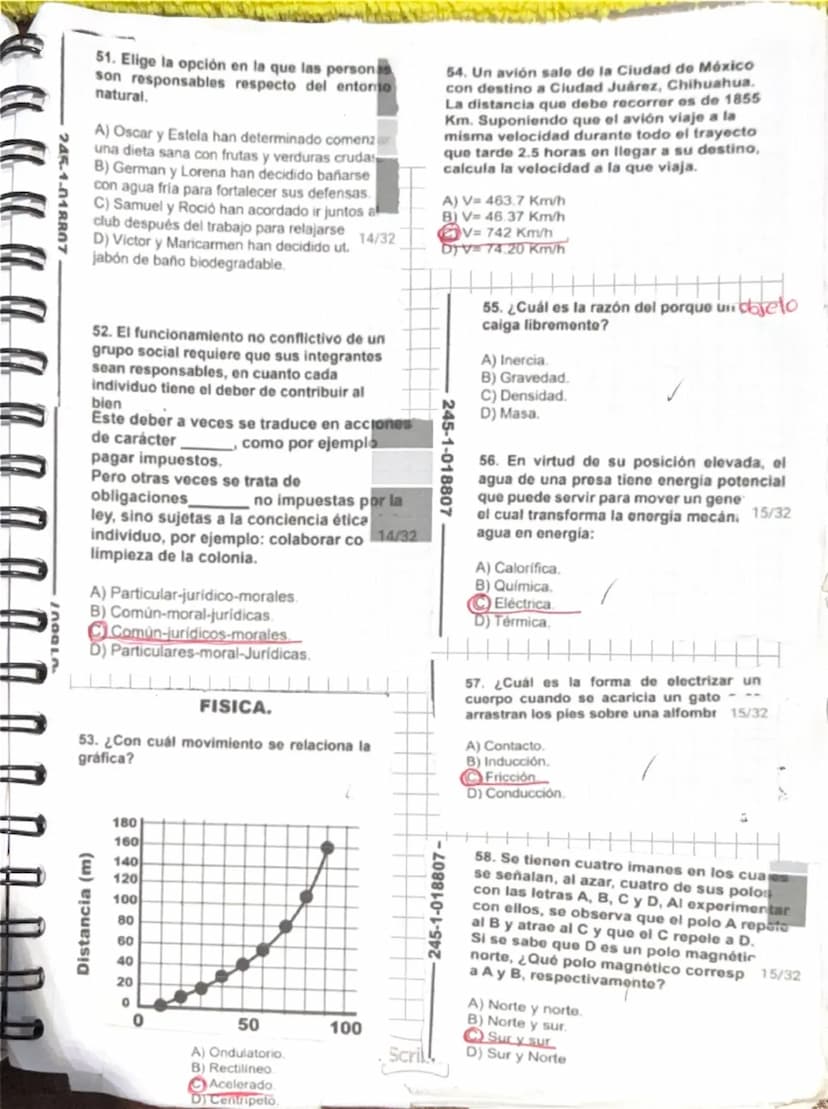 51. Elige la opción en la que las personas
son responsables respecto del entorno
natural.
A) Oscar y Estela han determinado comenz
una dieta sana con frutas y verduras crudas
B) German y Lorena han decidido bañarse
con agua fría para fortalecer sus defensas.
C) Samuel y Roció han acordado ir juntos a
club después del trabajo para relajarse
D) Víctor y Maricarmen han decidido ut. 14/32
jabón de baño biodegradable.
245-1-018807
52. El funcionamiento no conflictivo de un
grupo social requiere que sus integrantes
sean responsables, en cuanto cada
individuo tiene el deber de contribuir al
bien
Este deber a veces se traduce en acciones
de carácter ______, como por ejemplo
pagar impuestos.
Pero otras veces se trata de
obligaciones______ no impuestas por la
ley, sino sujetas a la conciencia ética
individuo, por ejemplo: colaborar co 14/32
limpieza de la colonia.
A) Particular-jurídico-morales.
B) Común-moral-jurídicas.
C) Común-jurídicos-morales.
D) Particulares-moral-Jurídicas.
FISICA.
53. ¿Con cuál movimiento se relaciona la
gráfica?
Distancia (m)
180
160
140
120
100
80
60
40
20
0
0 50 100
A) Ondulatorio.
B) Rectilíneo
C) Acelerado.
D) Centrípeto.
Scri
54. Un avión sale de la Ciudad de México
con destino a Ciudad Juárez, Chihuahua.
La distancia que debe recorrer es de 1855
Km. Suponiendo que el avión viaje a la
misma velocidad durante todo el trayecto
que tarde 2.5 horas en llegar a su destino,
calcula la velocidad a la que viaja.
A) V= 463.7 Km/h
B) V= 46.37 Km/h
C) V= 742 Km/h
D) V= 74.20 Km/h
245-1-018807
55. ¿Cuál es la razón del porque un objeto
caiga libremente?
A) Inercia.
B) Gravedad.
C) Densidad.
D) Masa.
56. En virtud de su posición elevada, el
agua de una presa tiene energía potencial
que puede servir para mover un gene
el cual transforma la energía mecán. 15/32
agua en energía:
A) Calorífica.
B) Química.
C) Eléctrica
D) Térmica.
57. ¿Cuál es la forma de electrizar un
cuerpo cuando se acaricia un gato
arrastran los pies sobre una alfombr 15/32
A) Contacto.
B) Inducción.
C) Fricción
D) Conducción.
245-1-018807
58. Se tienen cuatro imanes en los cuales
se señalan, al azar, cuatro de sus polos
con las letras A, B, C y D, Al experimentar
con ellos, se observa que el polo A repele
al B y atrae al C y que el C repele a D.
Si se sabe que D es un polo magnétic
norte, ¿Qué polo magnético corresp 15/32
a A y B, respectivamente?
A) Norte y norte.
B) Norte y sur.
C) Sur y sur
D) Sur y Norte